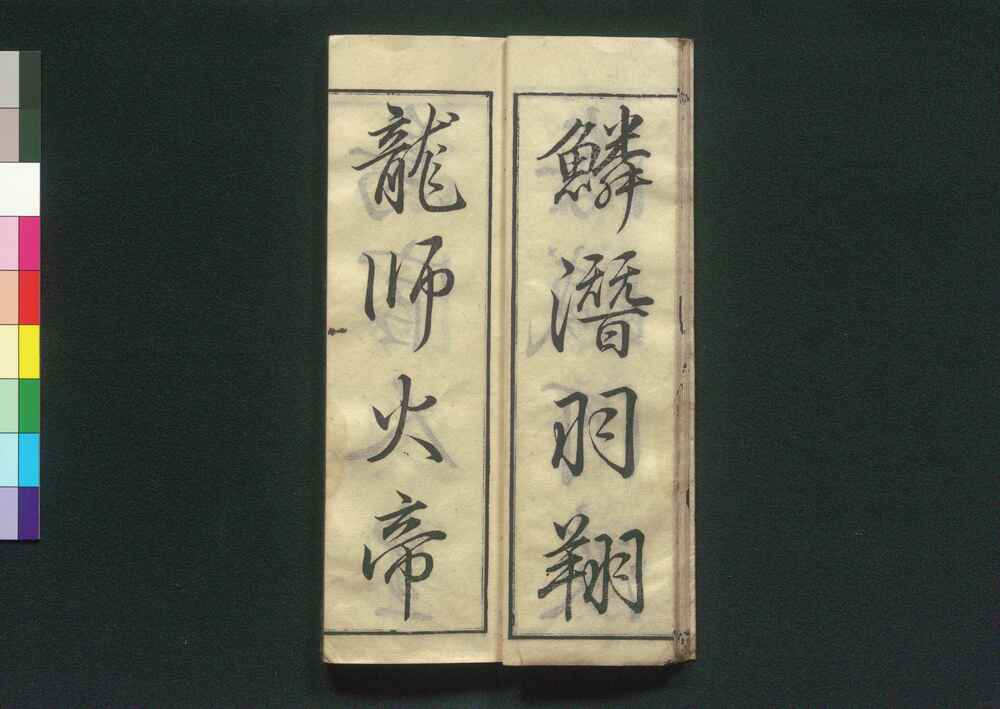 鱗潛羽翔
龍師火帝